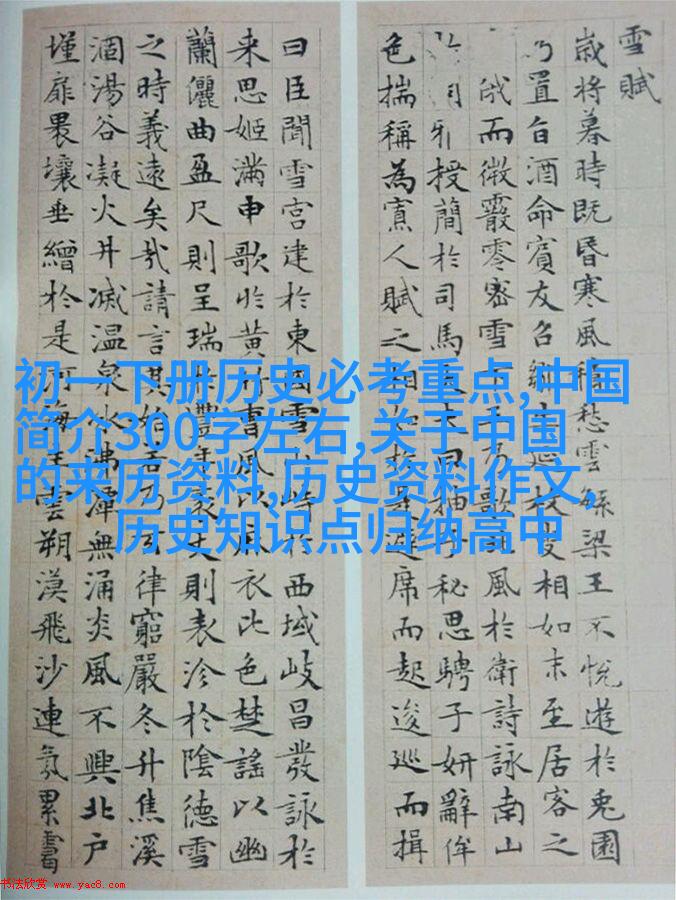 雪賦
歲將暮時既昏寒風積愁雲繁梁王不悅遊於兔園
乃置旨酒命賓友召鄒生延枚叟相如末至居客之
俄而微霰零密雪下王乃歌北風於衛詩詠南山
雅授簡於司馬大夫曰抽子秘思騁子妍辭侔
色揣稱為寡人賦之相如於是避席而起逡巡而揖
曰臣聞雪宮建於東國雪山峙於西域岐昌發詠於
来思姬滿申歌於黃竹曹風以麻衣比色楚謠以幽
蘭儷曲盈尺則呈瑞於豐年袤丈則表沴於陰德雪
之時義遠矣哉請言其始若乃玄律窮嚴冬升焦溪
涸湯谷凝火井滅温泉冰沸潭無涌炎風不興北户
墐扉裸壤垂繒於是河海生雲朔漠飛沙連氛累靄
初一下册历史必考重点,中国
简介300字左右,关于中国
的来历资料,历史资料作文,
历史知识点归纳高中
书法欣赏 www.yac8.com